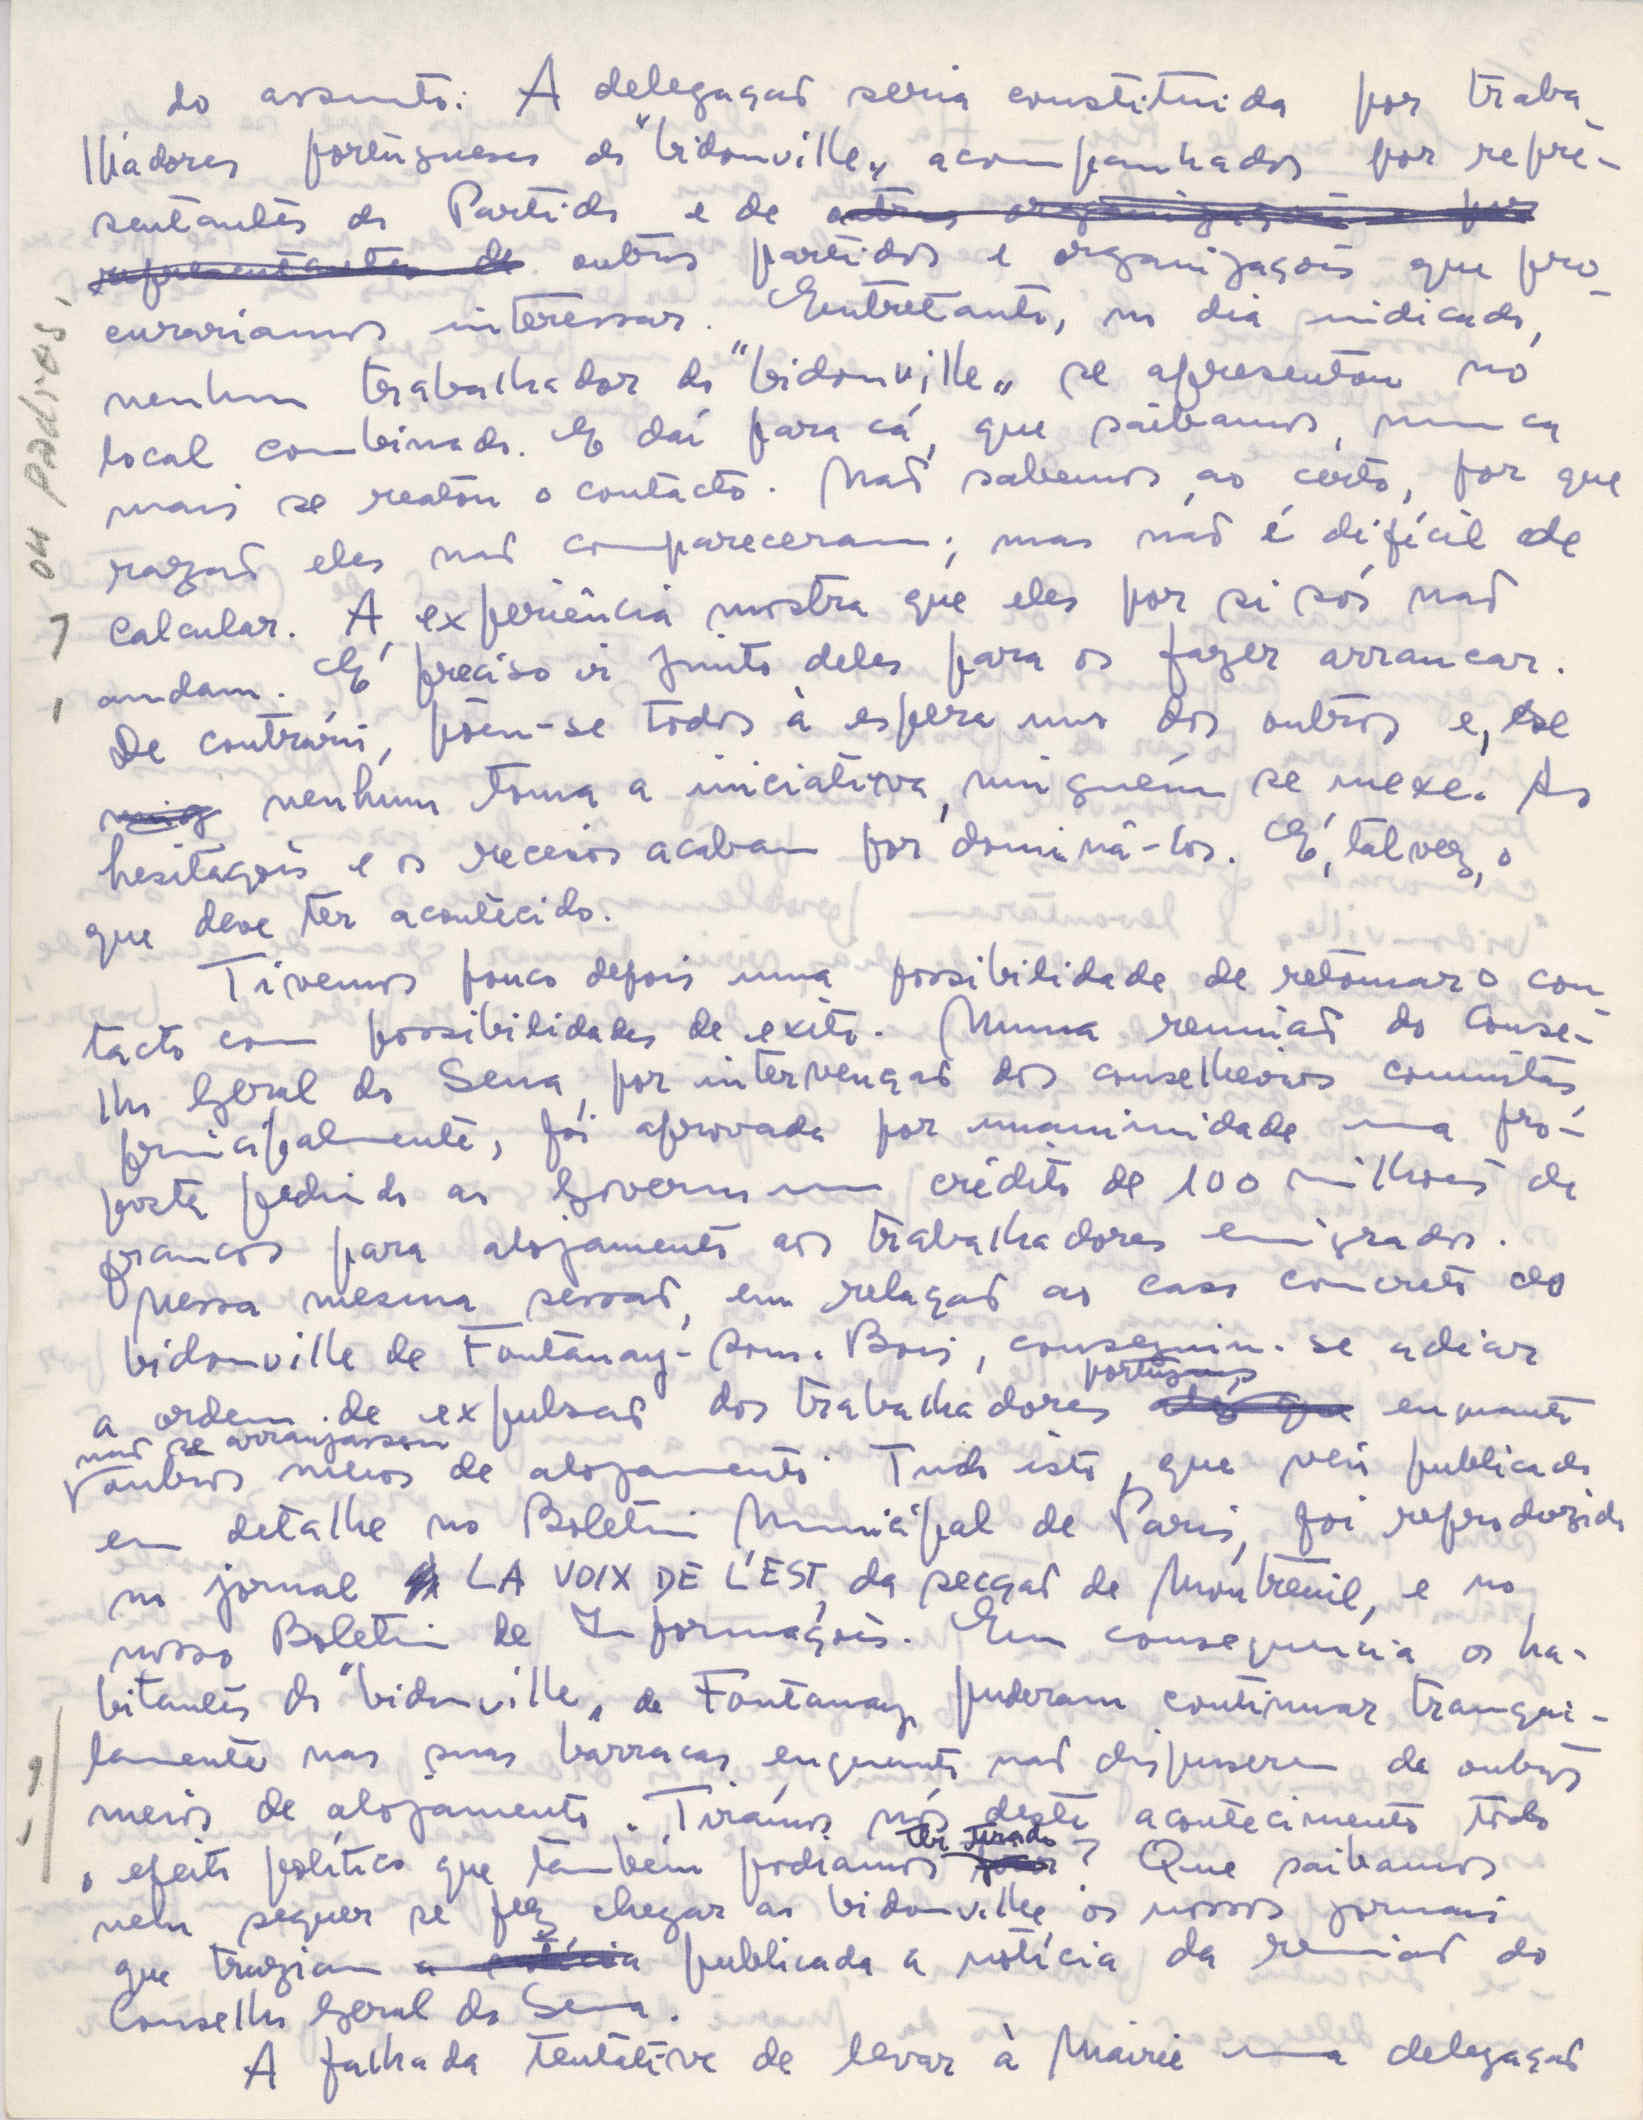 do assunto. A delegação seria constituida por traba
lhadores portugueses do "bidonville" acompanhados por repre-
sentantes do Partido e de outras organizações e por
representantes de outros partidos e organizações que pro-
curariamos interessar. Entretanto, no dia indicado,
nenhum trabalhador do "bidonville" se apresentou no
local combinado. E daí para cá, que saibamos, nunca
mais se reatou o contacto. Não sabemos, ao certo, por que
razão eles não compareceram; mas não é difícil de
calcular. A experiência mostra que eles por si sós não
andam. É preciso ir junto deles para os fazer arrancar.
De contrário, põem-se todos à espera uns dos outros e, se
ning nenhum toma a iniciativa, ninguém se mexe. As
hesitações e os receios acabam por dominá-los. É, talvez, o
que deve ter acontecido.
Tivemos pouco depois uma possibilidade de retomar o con
tacto com possibilidades de exito. Numa reunião do Conse-
lho Geral do Sena, por intervenção dos conselheiros comunistas
principalmente, foi aprovada por unanimidade uma pro-
posta pedindo ao Governo um crédito de 100 milhões de
francos para alojamento aos trabalhadores emigrados.
Nessa mesma sessão, em relação ao caso concreto do
bidonville de Fontanay-sous-Bois, conseguiu-se adiar
portugueses
a ordem de expulsão dos trabalhadores enquanto
não se arranjassem
outros meios de alojamento. Tudo isto, que veio publicado
em detalhe no Boletim Municipal de Paris, foi reproduzido
no jornal LA VOIX DE L'EST, da secção de Montreuil, e no
nosso Boletim de Informações. Em consequencia os ha-
bitantes do "bidonville" de Fontanay puderam continuar tranqui-
lamente nas suas barracas enquanto não dispuserem de outros
meios de alojamento. Tirámos nós deste acontecimento todo
ter tirado
o efeito político que também podiamos ? Que saibamos
nem sequer se fez chegar ao bidonville os nossos jornais
que traziam a notícia publicada a notícia da reunião do
Conselho Geral do Sena.
A falhada tentativa de levar à Mairie uma delegação
, ou padres,